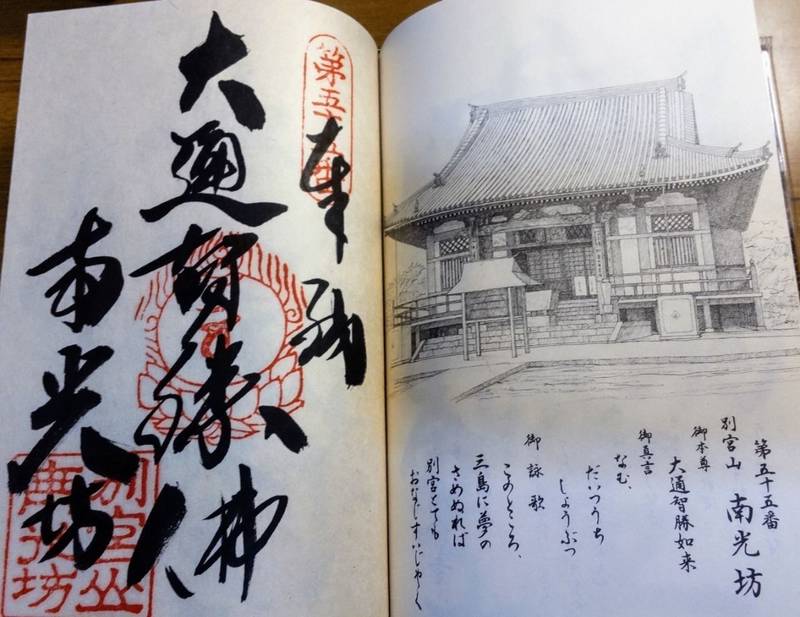 第五十五番
別宮山 南光坊
御本尊
大通智勝如来
御真言
なむ、
だいつうち
しょうぶつ
御詠歌
このところ、
三島に夢の
さめぬれば
別宮とても
おなじすいじゃく
第五十五番
奉納
大通智勝佛
南光坊
別宮山
南光坊